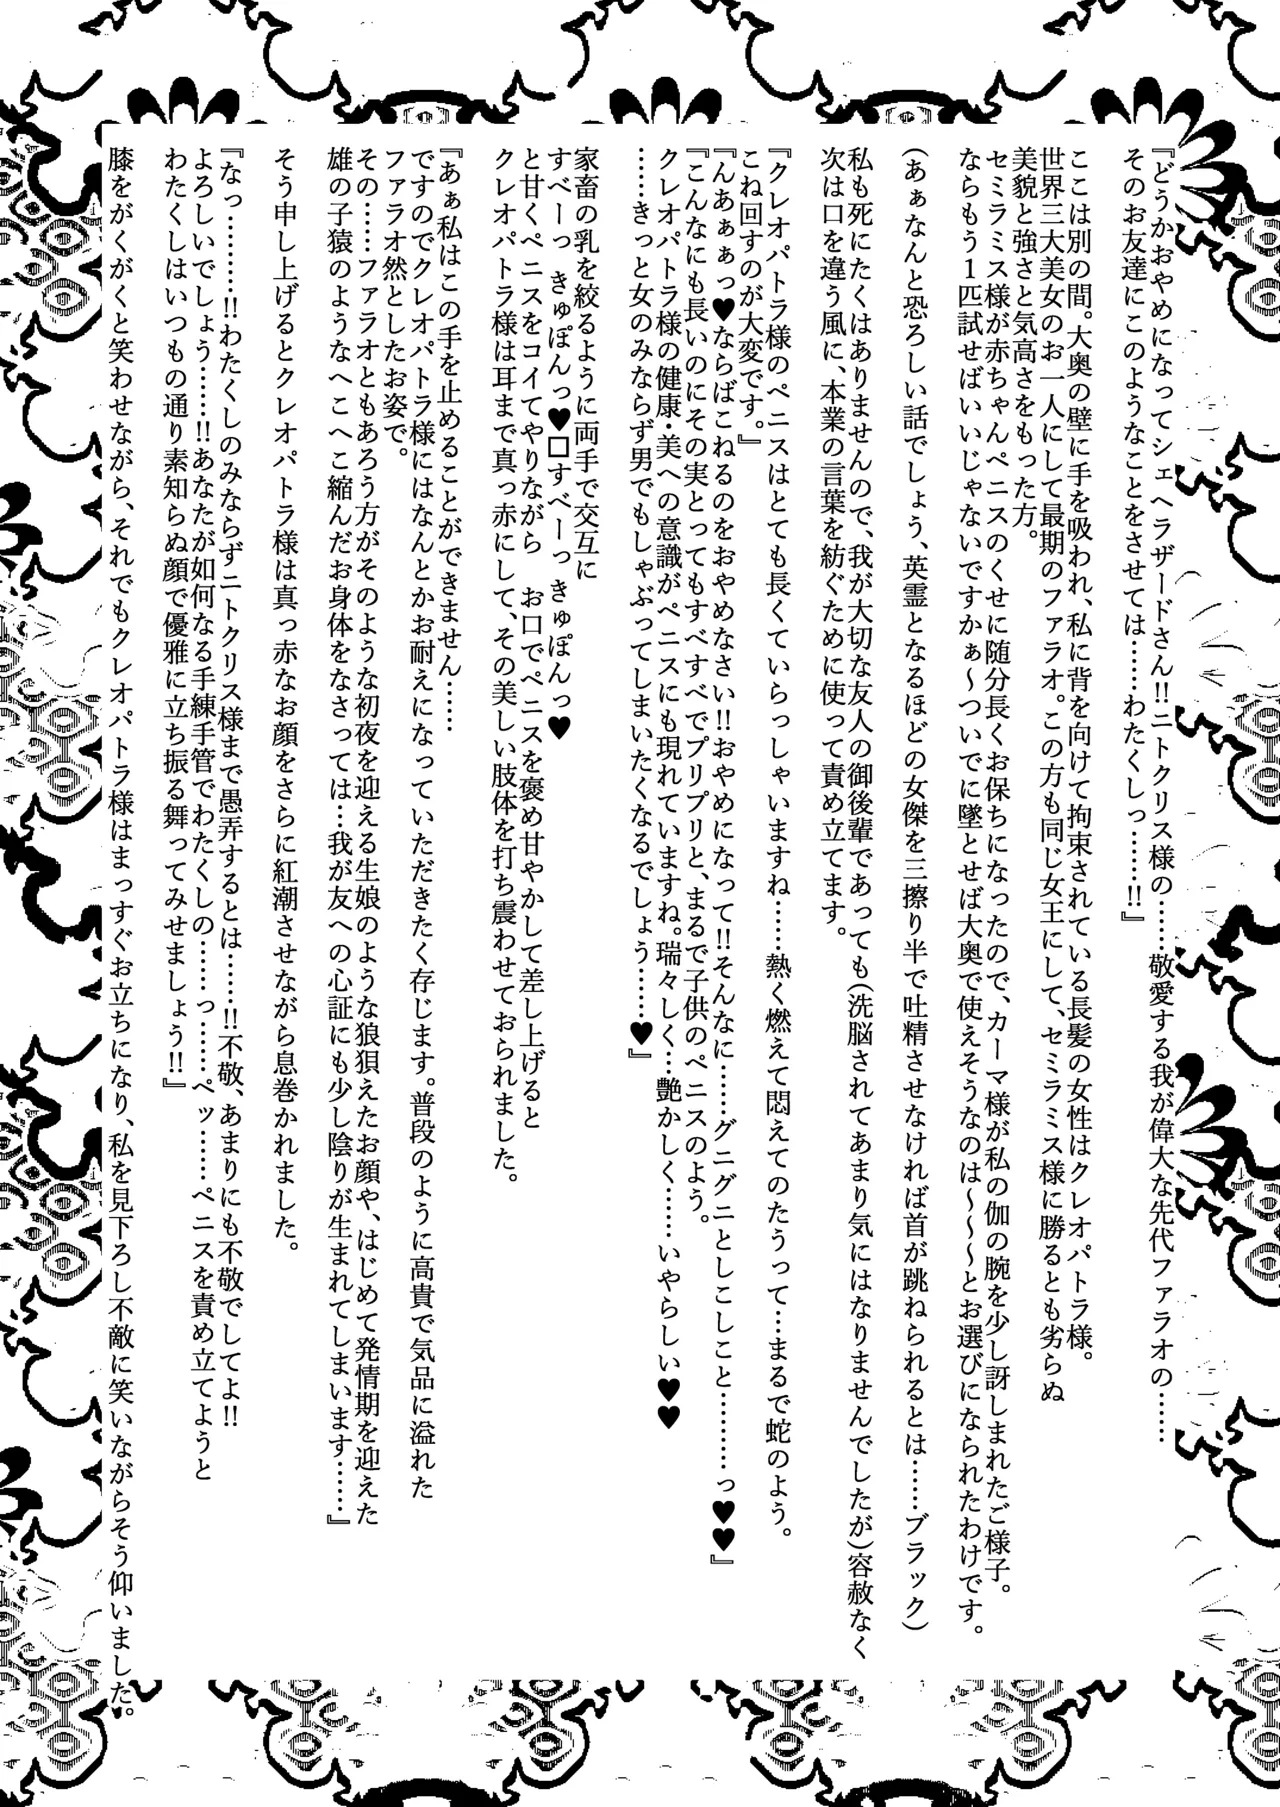 『どうかおやめになってシェヘラザードさん!!ニトクリス様の……敬愛する我が偉大な先代ファラオの……
そのお友達にこのようなことをさせては……わたくしっ……!!』
ここは別の間。大奥の壁に手を吸われ、私に背を向けて拘束されている長髪の女性はクレオパトラ様。
世界三大美女のお一人にして最期のファラオ。この方も同じ女王にして、セミラミス様に勝るとも劣らぬ
美貌と強さと気高さをもった方。
セミラミス様が赤ちゃんペニスのくせに随分長くお保ちになったので、カーマ様が私の伽の腕を少し訝しまれたご様子。
ならもう１匹試せばいいじゃないですかぁ～ついでに墜とせば大奥で使えそうなのは～～～とお選びになられたわけです。
(あぁなんと恐ろしい話でしょう、英霊となるほどの女傑を三擦り半で吐精させなければ首が跳ねられるとは……ブラック)
私も死にたくはありませんので、我が大切な友人の御後輩であっても(洗脳されてあまり気にはなりませんでしたが)容赦なく
次は口を違う風に、本業の言葉を紡ぐために使って責め立てます。
『クレオパトラ様のペニスはとても長くていらっしゃいますね……熱く燃えて悶えてのたうって…まるで蛇のよう。
こね回すのが大変です。』
『んあぁぁっ♥ならばこねるのをおやめなさい!!おやめになって!!そんなに……グニグニとしこしこと………っ♥♥』
『こんなにも長いのにその実とってもすべすべでプリプリと、まるで子供のペニスのよう。
クレオパトラ様の健康・美への意識がペニスにも現れていますね。瑞々しく…艶かしく……いやらしい♥♥
……きっと女のみならず男でもしゃぶってしまいたくなるでしょう……♥』
家畜の乳を絞るように両手で交互に
すべーっ　きゅぽんっ♥□すべーっ　きゅぽんっ♥
と甘くペニスをコイてやりながら　お口でペニスを褒め甘やかして差し上げると
クレオパトラ様は耳まで真っ赤にして、その美しい肢体を打ち震わせておられました。
『あぁ私はこの手を止めることができません……
ですのでクレオパトラ様にはなんとかお耐えになっていただきたく存じます。普段のように高貴で気品に溢れた
ファラオ然としたお姿で。
その……ファラオともあろう方がそのような初夜を迎える生娘のような狼狽えたお顔や、はじめて発情期を迎えた
雄の子猿のようなへこへこ縮んだお身体をなさっては…我が友への心証にも少し陰りが生まれてしまいます……』
そう申し上げるとクレオパトラ様は真っ赤なお顔をさらに紅潮させながら息巻かれました。
『なっ………!!わたくしのみならずニトクリス様まで愚弄するとは……!!不敬、あまりにも不敬でしてよ!!
よろしいでしょう……!!あなたが如何なる手練手管でわたくしの……っ……ペッ……ペニスを責め立てようと
わたくしはいつもの通り素知らぬ顔で優雅に立ち振る舞ってみせましょう!!』
膝をがくがくと笑わせながら、それでもクレオパトラ様はまっすぐお立ちになり、私を見下ろし不敵に笑いながらそう仰いました。